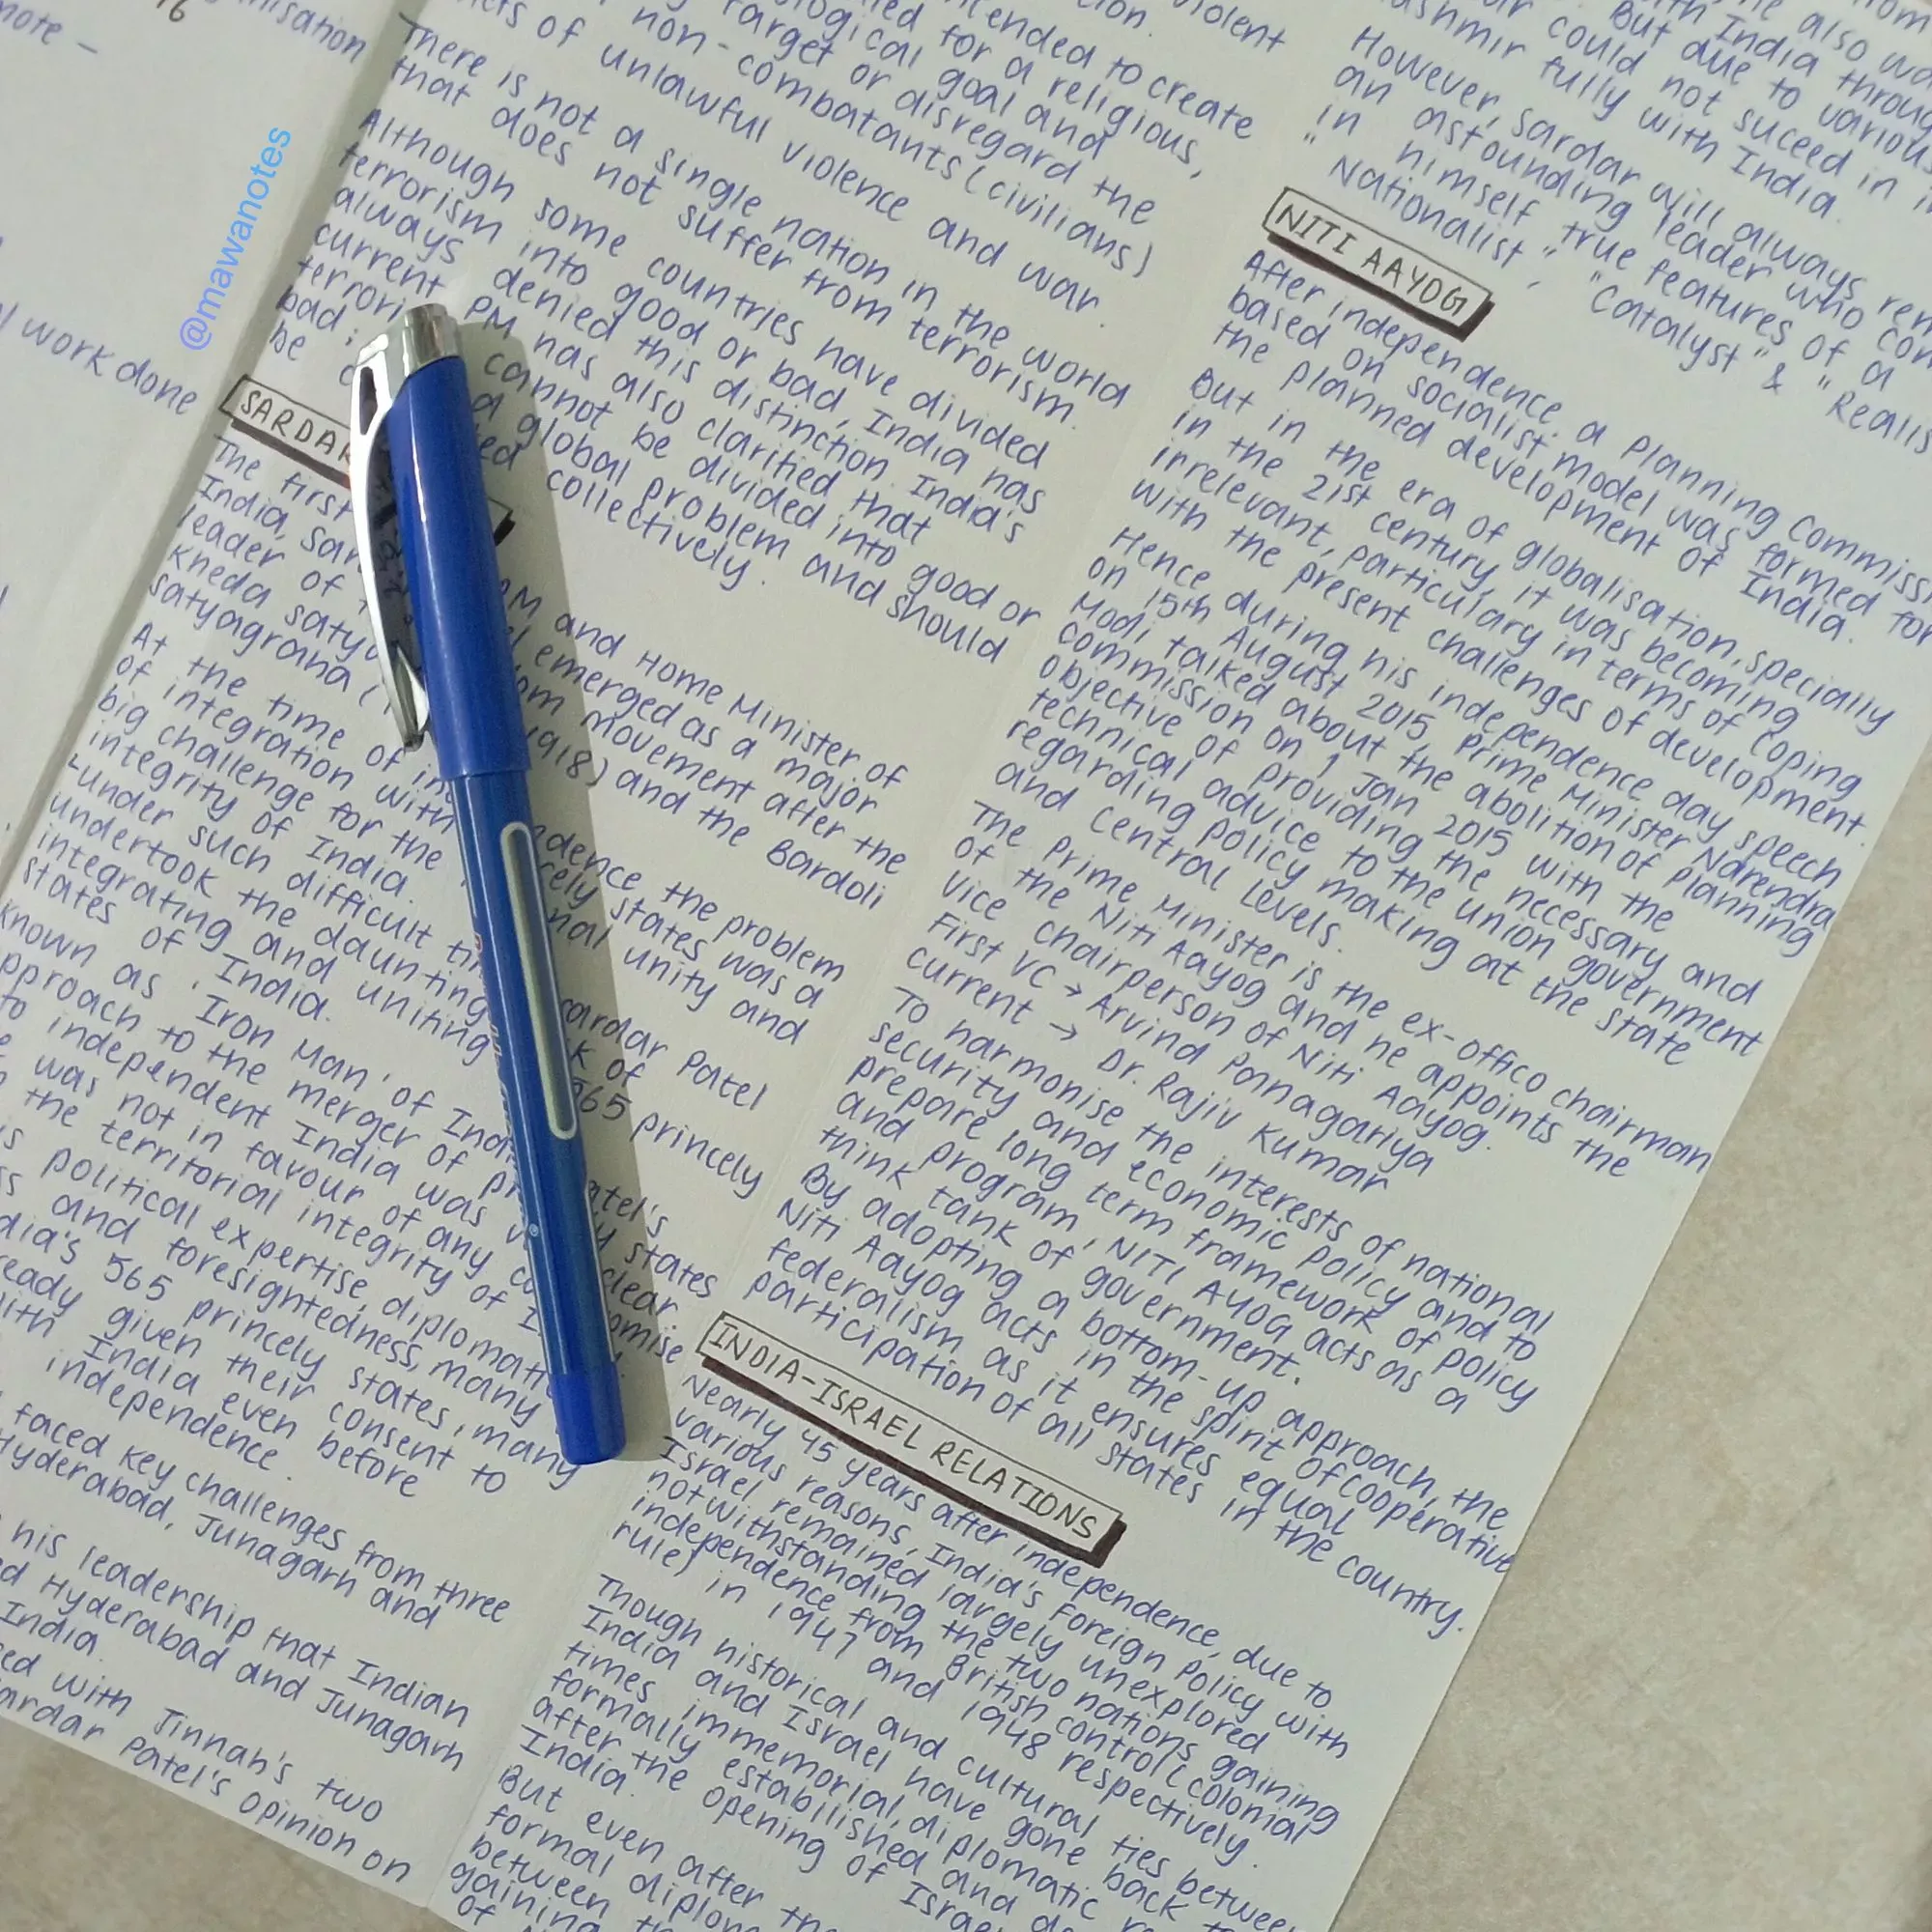 note –
nisation
work done
@mawanotes
violent
intended to create
for a religious,
ological goal and
target or disregard the
non-combatants (civilians)
of unlawful violence and war.
There is not a single nation in the world
that does not suffer from terrorism.
Although some countries have divided
terrorism into good or bad, India has
always denied this distinction. India's
current PM has also clarified that
terrori cannot be divided into good or
bad; a global problem and should
be c ted collectively.
SARDAR
The first PM and Home Minister of
India, Sar el emerged as a major
leader of om movement after the
Kheda satya 1918) and the Bardoli
satyagraha (
At the time of in dence the problem
of integration with cely states was a
big challenge for the nal unity and
integrity of India.
Under such difficult ti Sardar Patel
undertook the daunting k of
integrating and uniting 565 princely
states of India.
known as 'Iron Man' of Indi atel's
pproach to the merger of pr y states
to independent India was v clear
was not in favour of any co omise
the territorial integrity of I
s political expertise, diplomati
ss and foresightedness, many
dia's 565 princely states, many
eady given their consent to
ith India even before
independence.
faced key challenges from three
Hyderabad, Junagarh and
his leadership that Indian
d Hyderabad and Junagarh
India.
sed with Jinnah's two
ardar Patel's opinion on
with India throu
But due to various
could not suceed in
ashmir fully with India.
However, Sardar will always re
an astounding leader who con
in himself true features of a
"Nationalist", "Catalyst" & "Realis
NITI AAYOG
After independence a Planning Commiss
based on socialist model was formed for
the planned development of India.
But in the era of globalisation, specially
in the 21st century, it was becoming
irrelevant, particulary in terms of coping
with the present challenges of development.
Hence during his independence day speech
on 15th August 2015 Prime Minister Narendra
Modi talked about the abolition of planning
commission on 1 Jan 2015 with the
objective of providing the necessary and
technical advice to the union government
regarding policy making at the state
and central levels.
The Prime Minister is the ex-offico chairman
of the Niti Aayog and he appoints the
Vice chairperson of Niti Aayog.
First VC → Arvind Panagariya
current → Dr. Rajiv Kumar
To harmonise the interests of national
security and economic policy and to
prepare long term framework of policy
and program, NITI AYOG acts as a
think tank of government.
By adopting a bottom-up approach, the
Niti Aayog acts in the spirit of cooperative
federalism as it ensures equal
participation of all states in the country.
INDIA-ISRAEL RELATIONS
Nearly 45 years after independence, due to
various reasons, India's Foreign Policy with
Israel remained largely unexplored
notwithstanding the two nations gaining
independence from British control (colonial
rule) in 1947 and 1948 respectively.
Though historical and cultural ties betwee
India and Israel have gone back t
times immemorial, diplomatic re
formally established and de
after the opening of Israe
India.
But even after the
formal diplom
between th
gaining
of